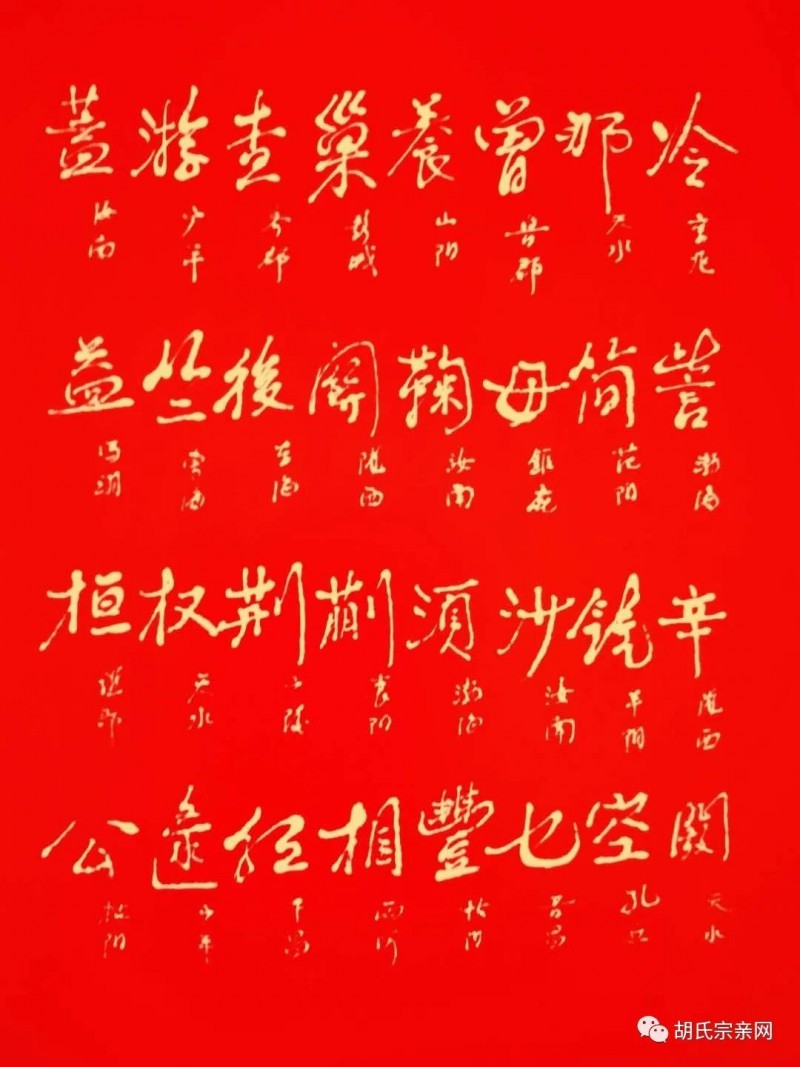 冷那曾養巢查游蓋
京兆 天水 鲁郡 山阳 彭城 齐郡 广平 汝南
訾简毋鞠關後竺益
渤海 范阳 钜鹿 汝南 陇西 东海 东海 冯翊
辛饶沙須蒯荆权桓
陇西 平阳 汝南 渤海 襄阳 广陵 天水 谯郡
阚空乜豐相红逯公
天水 孔丘 晋昌 松阳 西河 平昌 广平 括阳
胡氏宗亲网